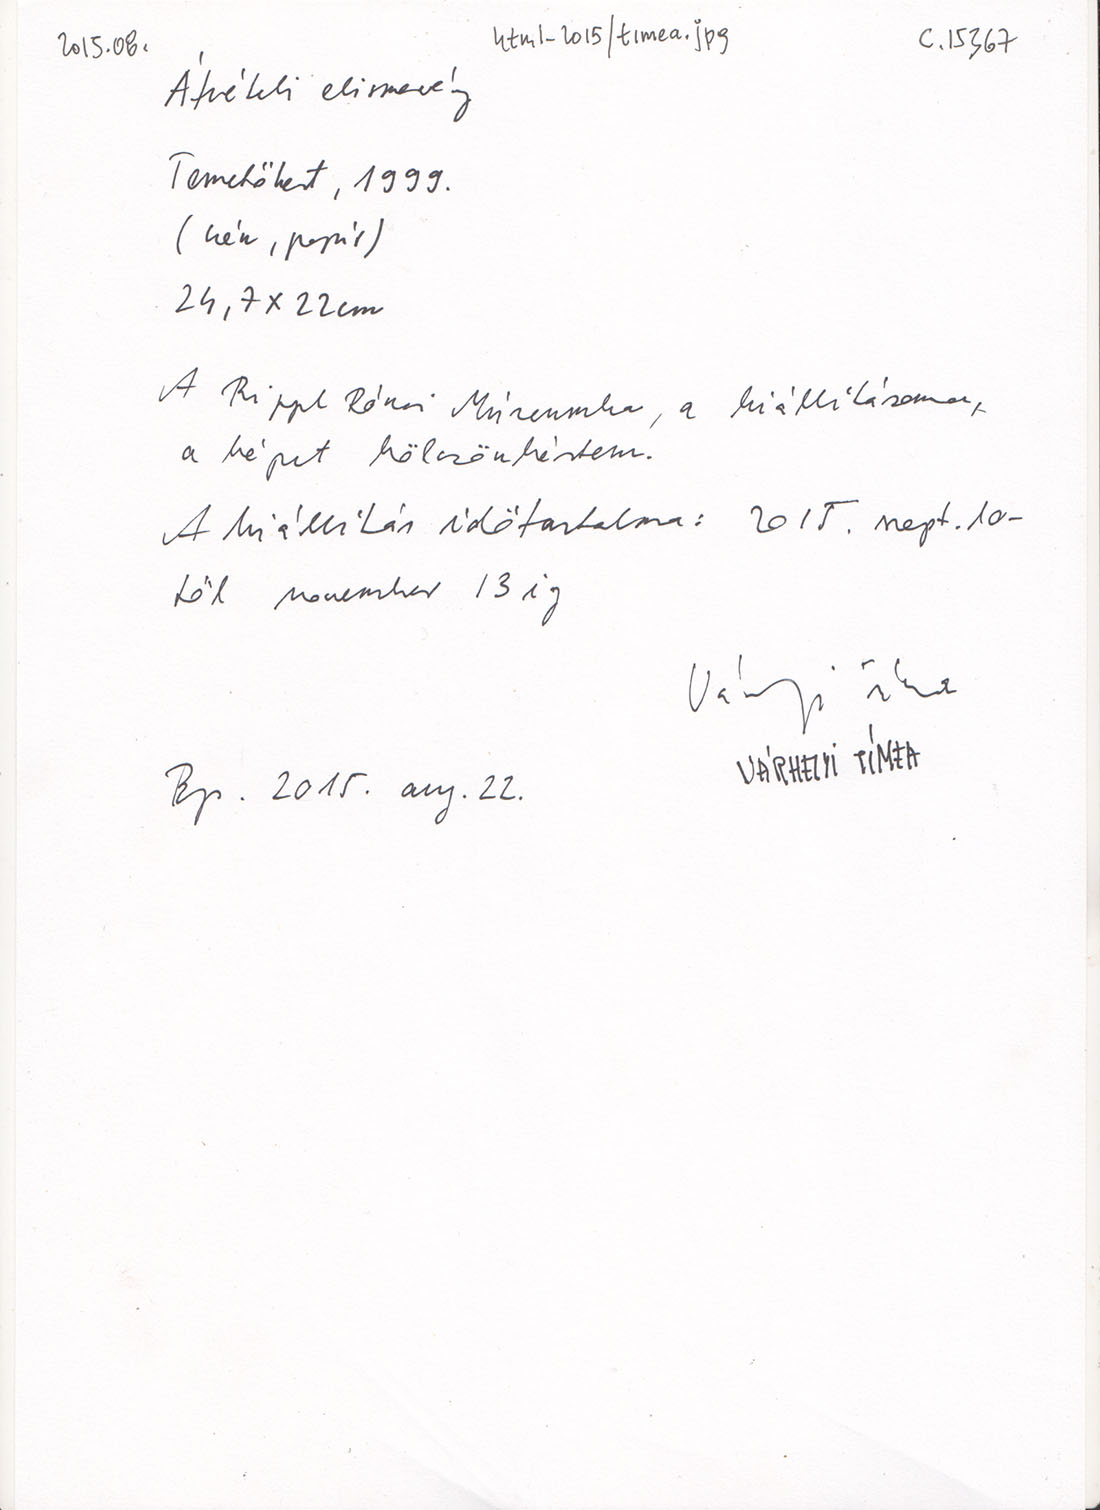 2015.08. html-2015/timea.jpg C.15367
Átvételi elismervény
Temetőkert, 1999.
(kén, papír)
24,7x22cm
A Rippl Rónai Múzeumba, a kiállításomra,
a képet kölcsönkértem.
A kiállítás időtartalma: 2015. szept. 10-
től november 13 ig
VÁRHELYI TÍMEA
Bp. 2015. aug. 22.